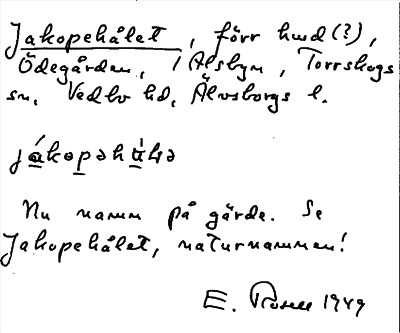 Jakopehålet, förr hwd(?),
Ödegården, i Ålsbyn, Torrskogs
sn. Vedbo hd, Älvsborgs l.
Nu namn på gärde. Se
Jakopehålet, naturnamnen!
E. Rosell 1949